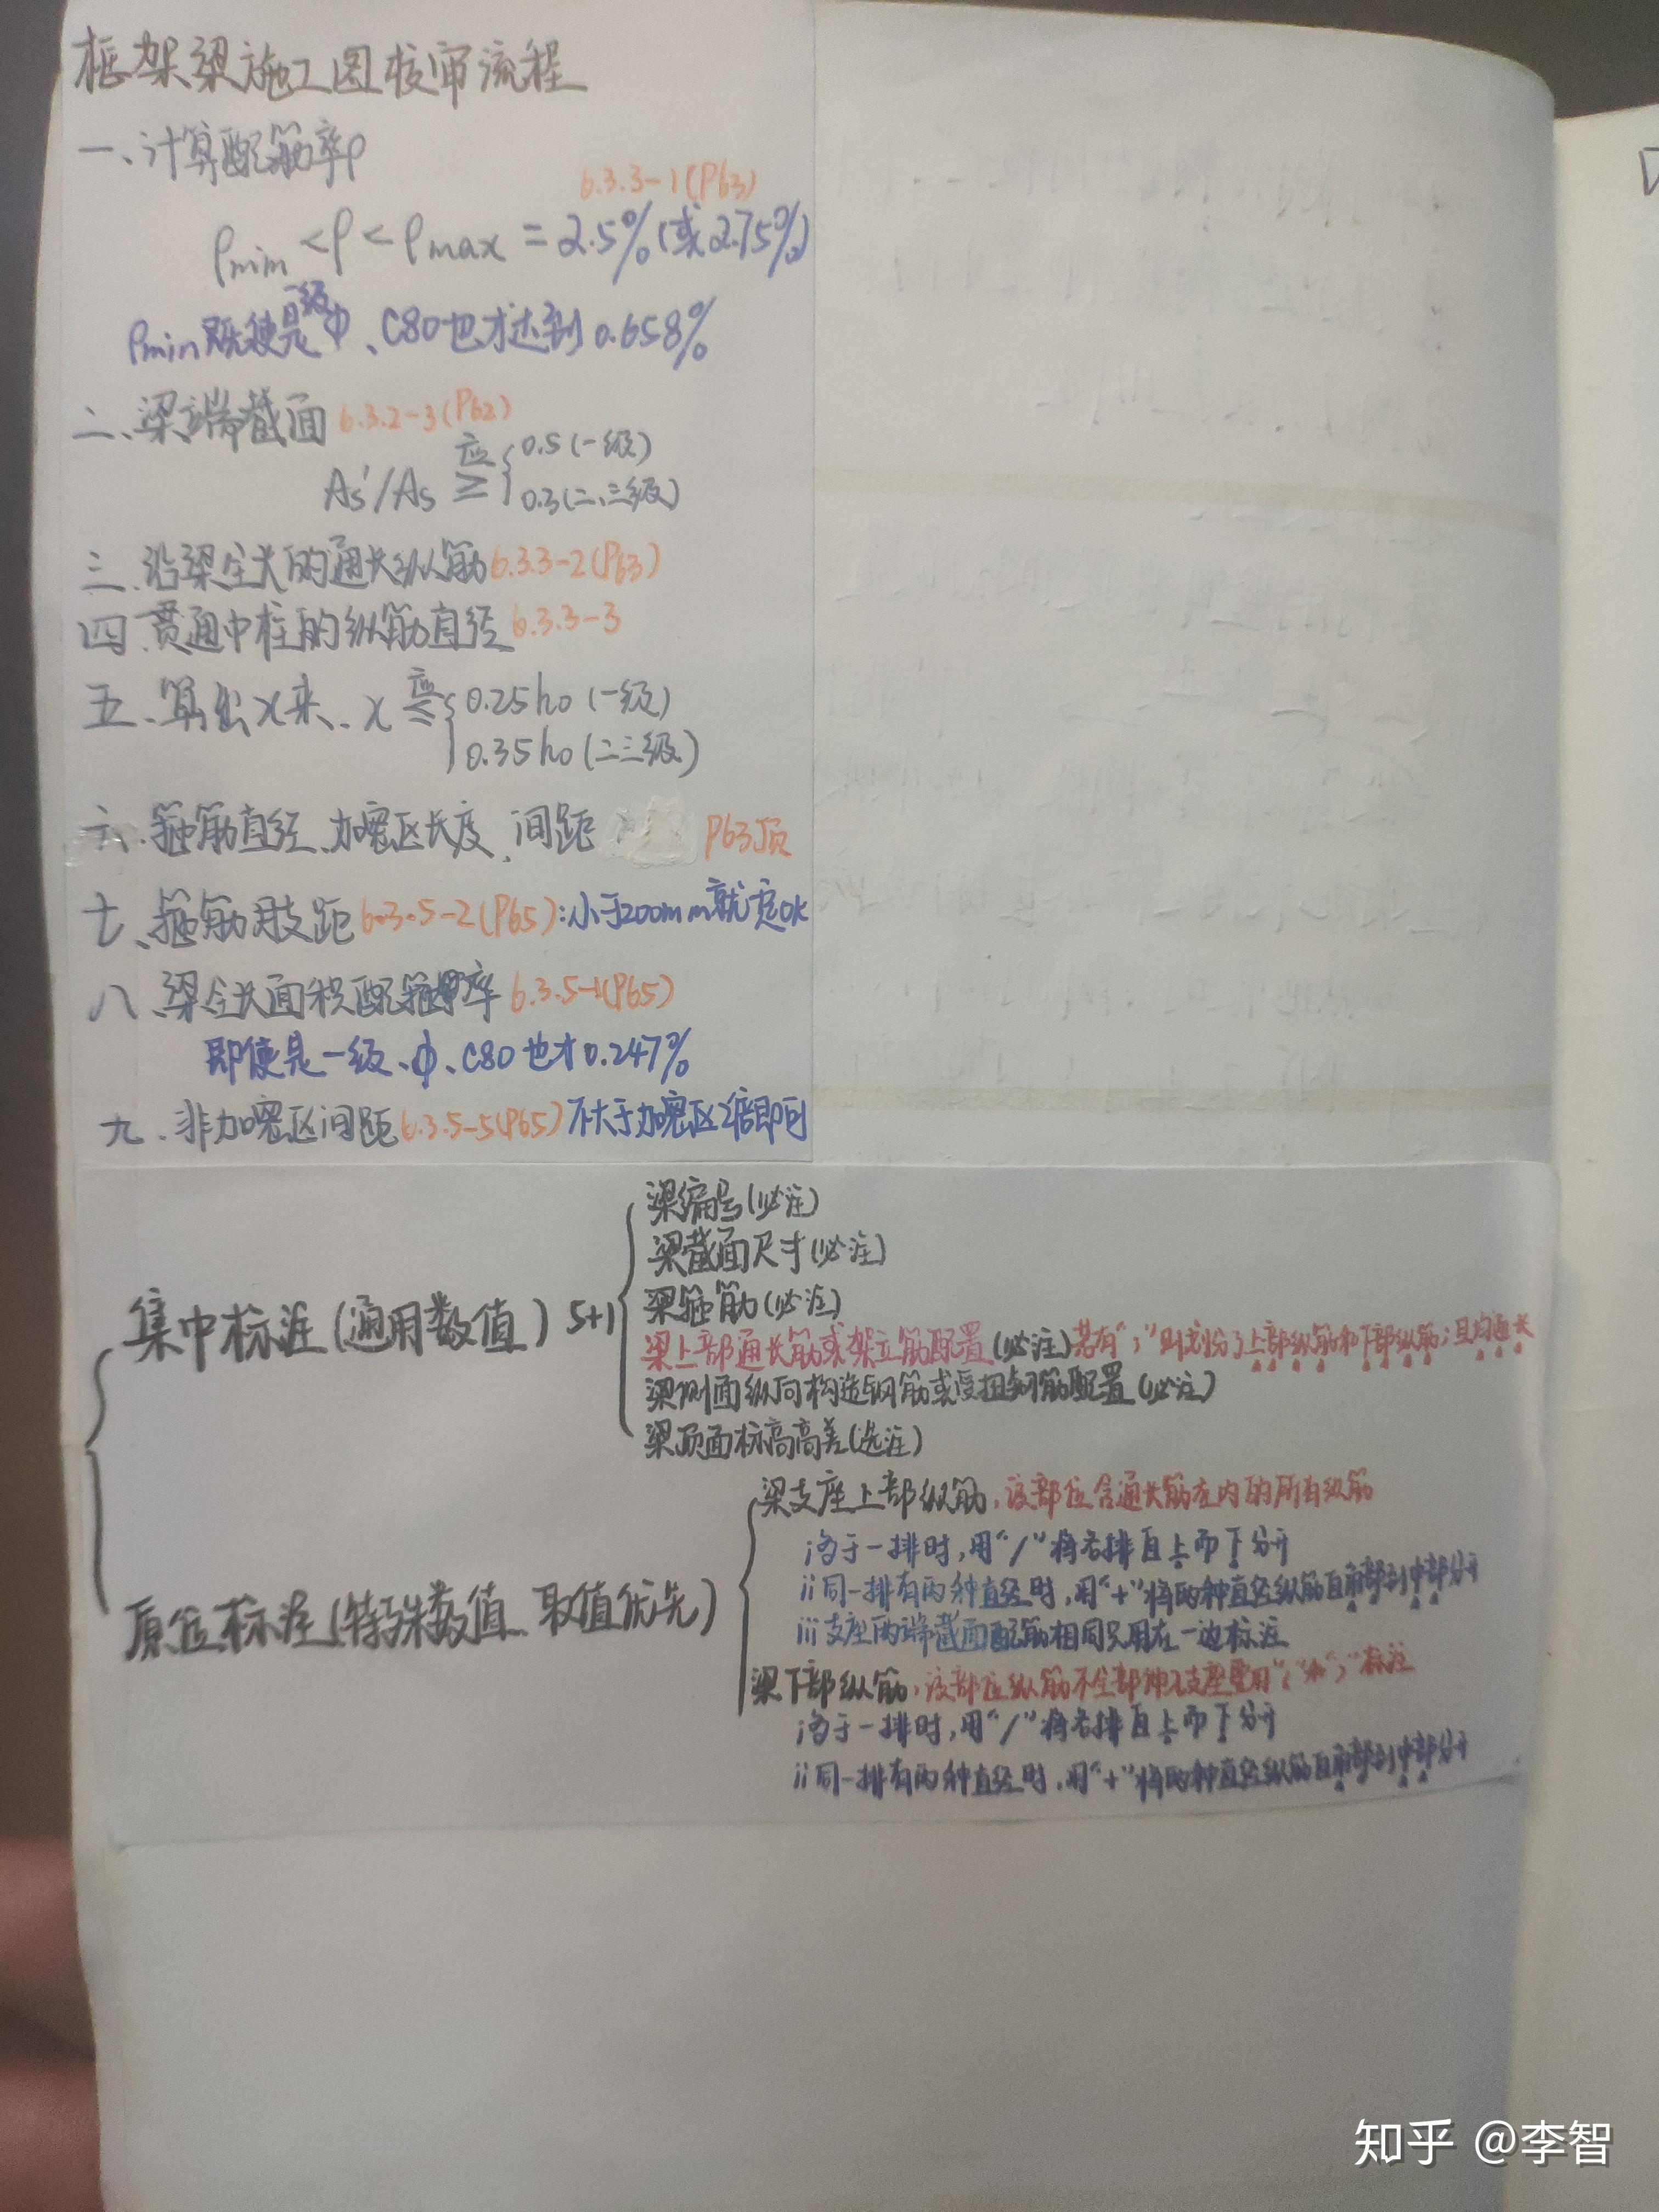 框架梁施工图校审流程
一、计算配筋率ρ
6.3.3-1(P63)
ρmin<ρ<ρmax=2.5%(或2.75%)
ρmin既使是一级、ф、C80也才达到0.658%
二、梁端截面 6.3.2-3(P62)
As'/As 应≥ 0.5(一级)
0.3(二、三级)
三、沿梁全长的通长纵筋 6.3.3-2(P63)
四、贯通中柱的纵筋直径 6.3.3-3
五、算出x来、x 应≤ 0.25h0(一级)
0.35h0(二三级)
六、箍筋直径、加密区长度、间距 P63顶
七、箍筋肢距 6.3.5-2(P65):小于200mm就完OK
八、梁全长面积配箍率 6.3.5-1(P65)
即使是一级、ф、C80也才0.247%
九、非加密区间距 6.3.5-5(P65) 不大于加密区2倍即可
集中标注(通用数值) 5+1
梁编号(必注)
梁截面尺寸(必注)
梁箍筋(必注)
梁上部通长筋或架立筋配置(必注)若有";"则划分了上部纵筋和下部纵筋;且均通长
梁侧面纵向构造钢筋或受扭钢筋配置(必注)
梁顶面标高高差(选注)
原位标注(特殊数值、取值优先)
梁支座上部纵筋,该部位含通长筋在内的所有纵筋
i多于一排时,用"/"将各排自上而下分开
ii同一排有两种直径时,用"+"将两种直径纵筋自角部到中部分开
iii支座两端截面配筋相同只用在一边标注
梁下部纵筋,该部位纵筋不全部伸入支座要用"("和")"标注
i多于一排时,用"/"将各排自上而下分开
ii同一排有两种直径时,用"+"将两种直径纵筋自角部到中部分开
知乎 @李智